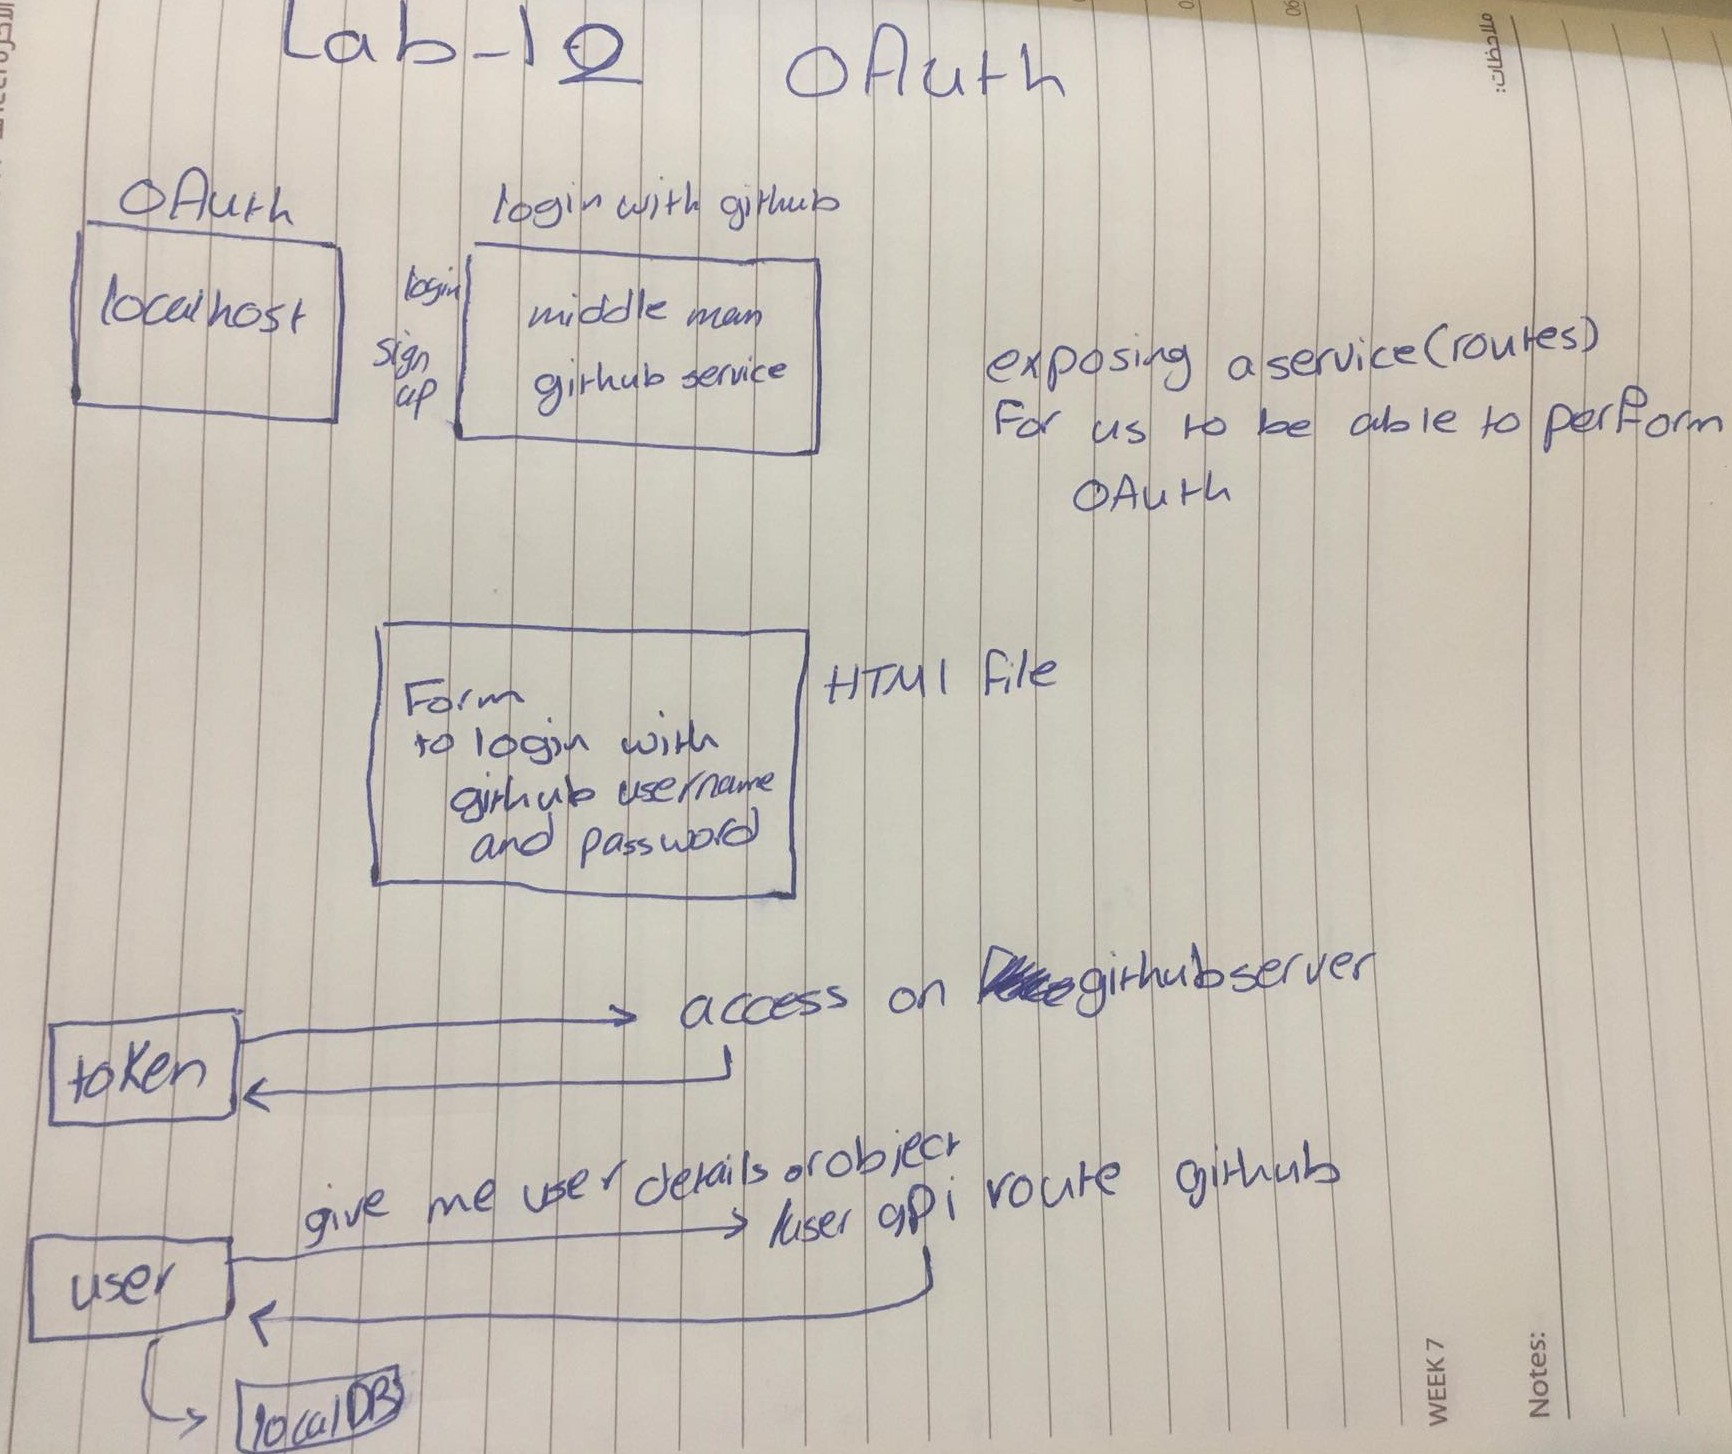 Lab-12 OAuth
OAuth
localhost
login
sign
up
login with github
middle man
github service
exposing a service (routes)
For us to be able to perform
OAuth
Form
to login with
github username
and password
HTMl file
token
access on github server
give me user details or object
/user api route github
user
local DB
WEEK 7
Notes:
ملاحظات: